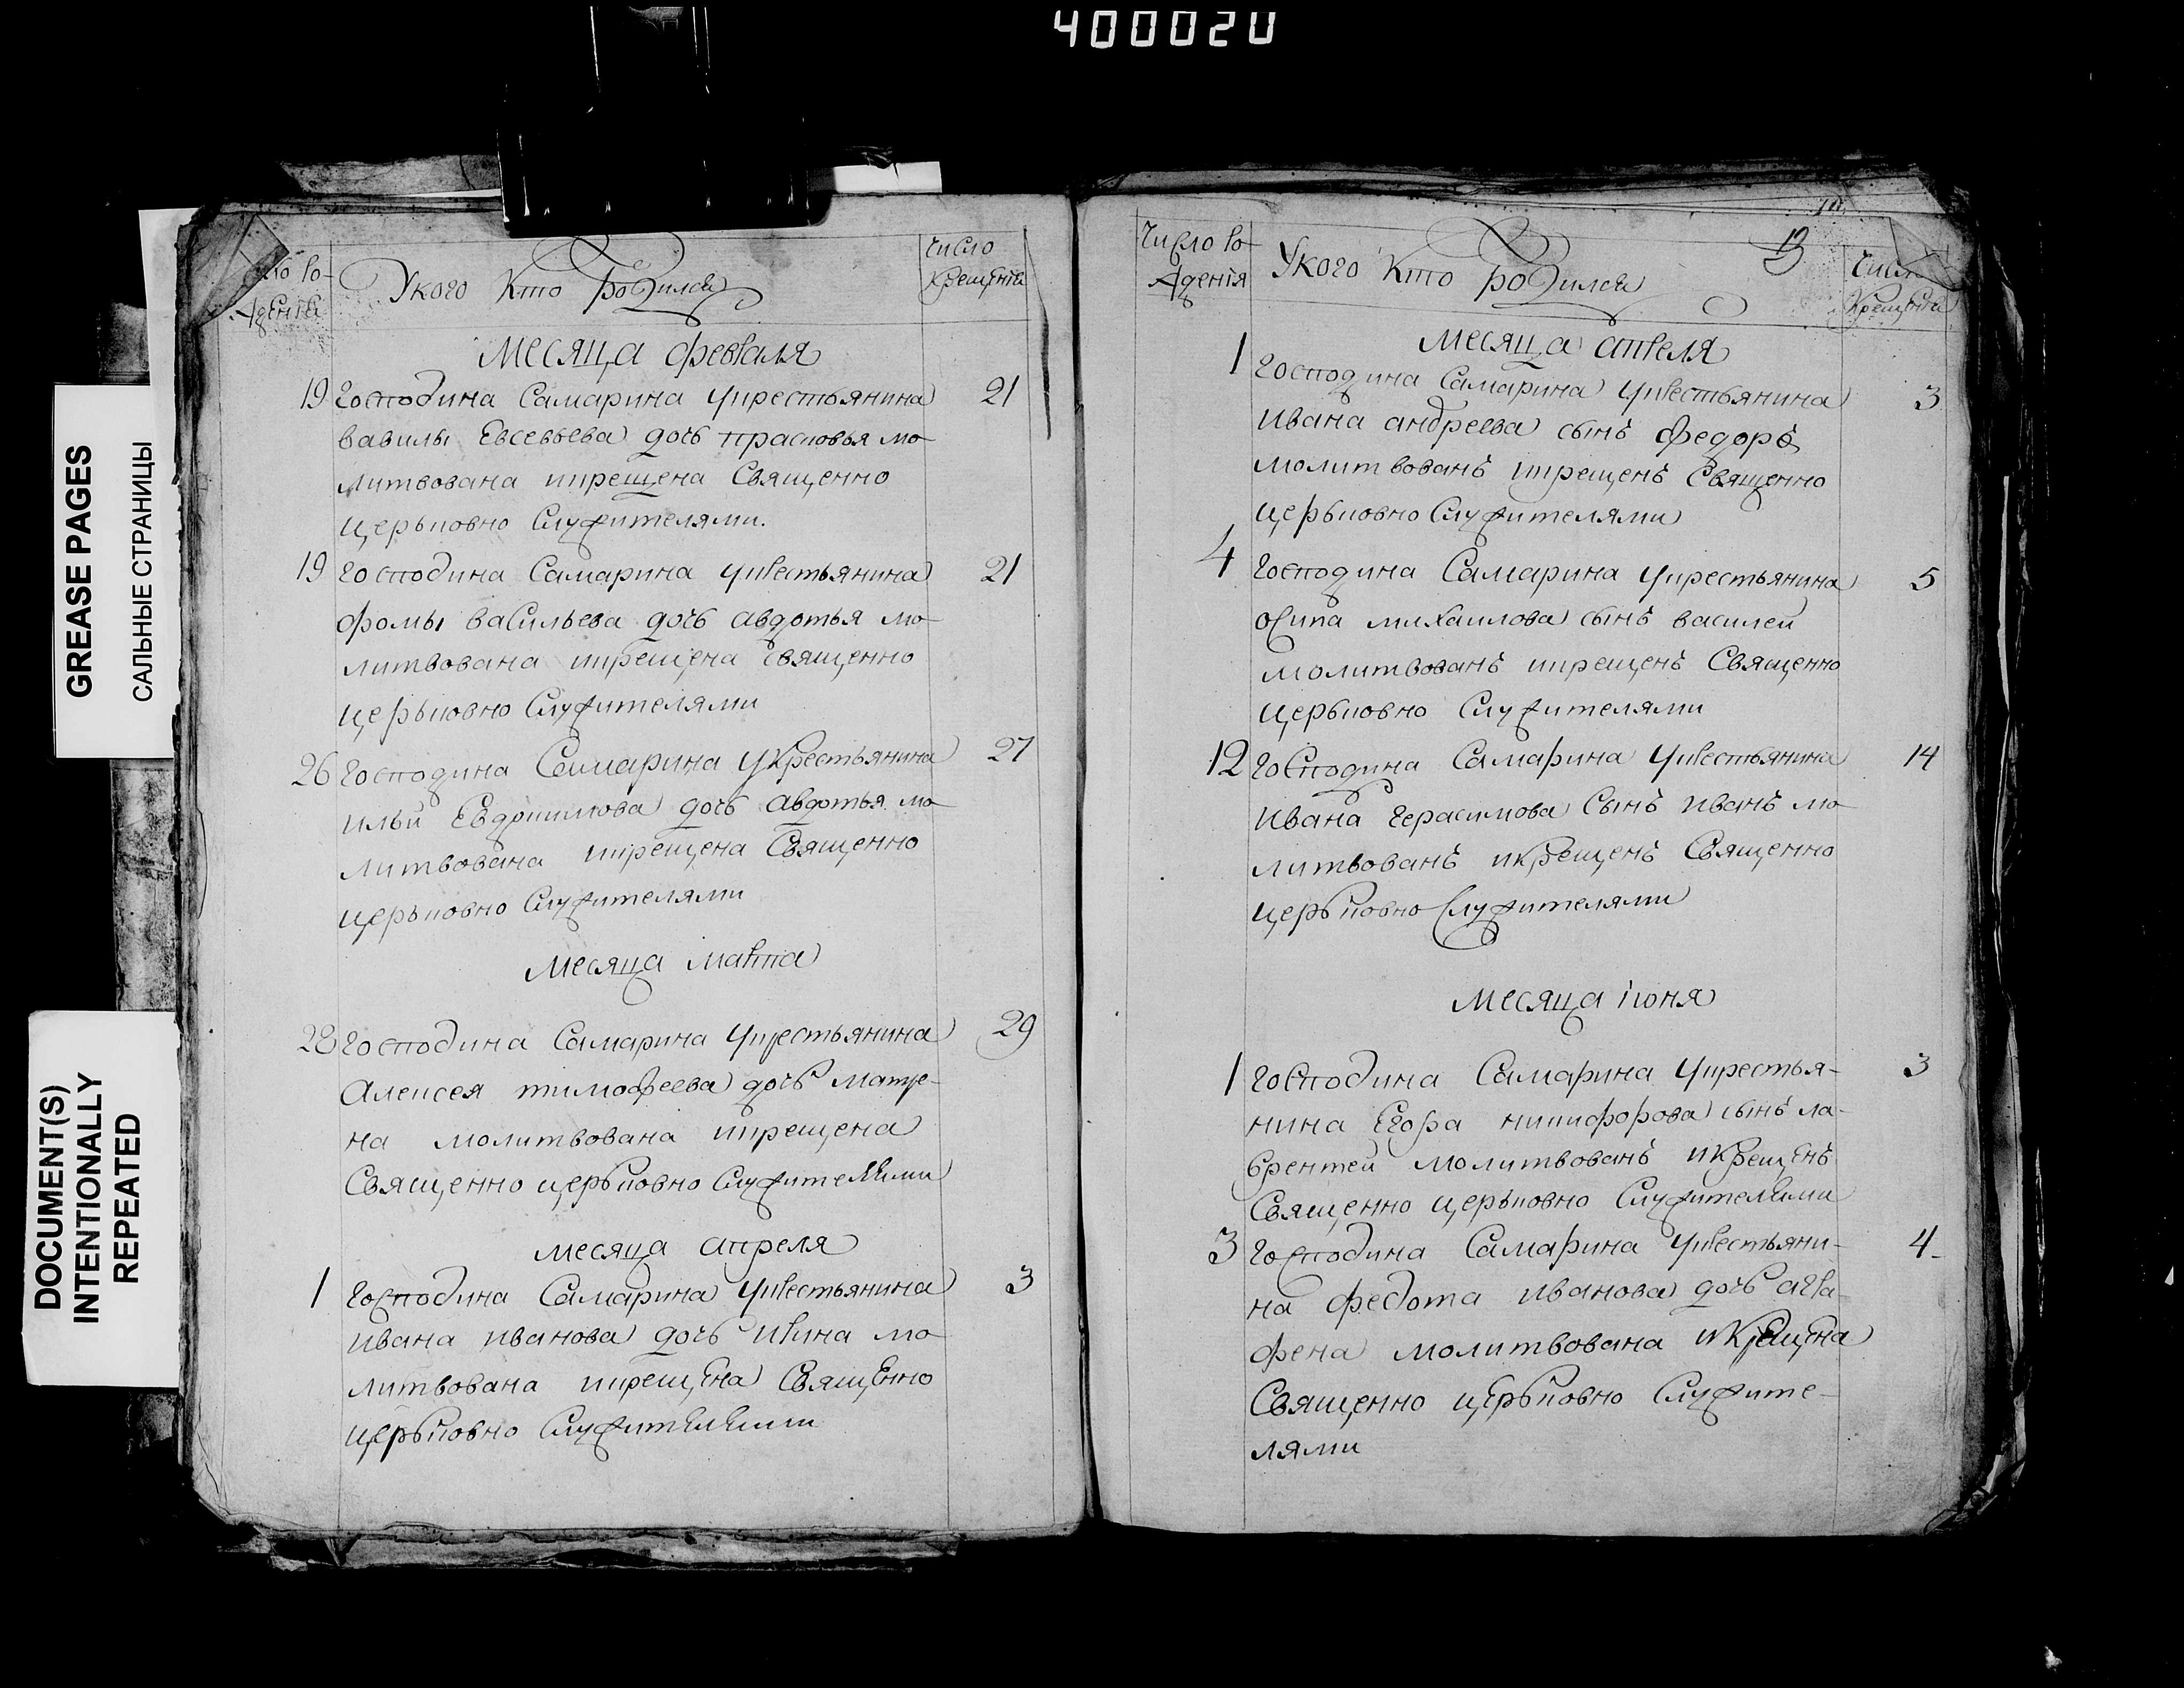 400020
GREASE PAGES
САЛЬНЫЕ СТРАНИЦЫ
DOCUMENT(S)
INTENTIONALLY
REPEATED
Число ро-
жденїя
У кого кто родился
число
крещенїя
месяца февраля
19 господина Самарина укрестьянина 21
вавилы Евсевьева дочь прасковья мо-
литвована икрещена Священно
церьковно Служителями.
19 господина Самарина укрестьянина 21
фомы васильева дочь авдотья мо-
литвована икрещена священно
церьковно Служителями
26 господина Самарина укрестьянина 27
ильи Евдокимова дочь авдотья мо-
литвована икрещена Священно
церьковно Служителями
месяца марта
28 господина Самарина укрестьянина 29
Алексея тимофеева дочь матре-
на молитвована икрещена
Священно церьковно Служителями
месяца апреля
1 господина Самарина укрестьянина 3
ивана иванова дочь ирина мо-
литвована икрещена Священно
церьковно Служителями
Число ро-
жденїя
У кого кто родился
13
число
крещенїя
месяца апреля
1 господина Самарина укрестьянина 3
ивана андреева сынъ федоръ
молитвованъ икрещенъ Священно
церьковно Служителями
4 господина Самарина укрестьянина 5
осипа михаилова сынъ василей
молитвованъ икрещенъ Священно
церьковно Служителями
12 господина Самарина укрестьянина 14
ивана герасимова Сынъ иванъ мо-
литвованъ икрещенъ Священно
церьковно Служителями
месяца iюня
1 господина Самарина укрестья- 3
нина Егора никифорова сынъ ла-
врентей молитвованъ икрещенъ
Священно церьковно Служителями
3 господина Самарина укрестьяни- 4
на федота иванова дочь агра-
фена молитвована икрещена
Священно церьковно Служите-
лями